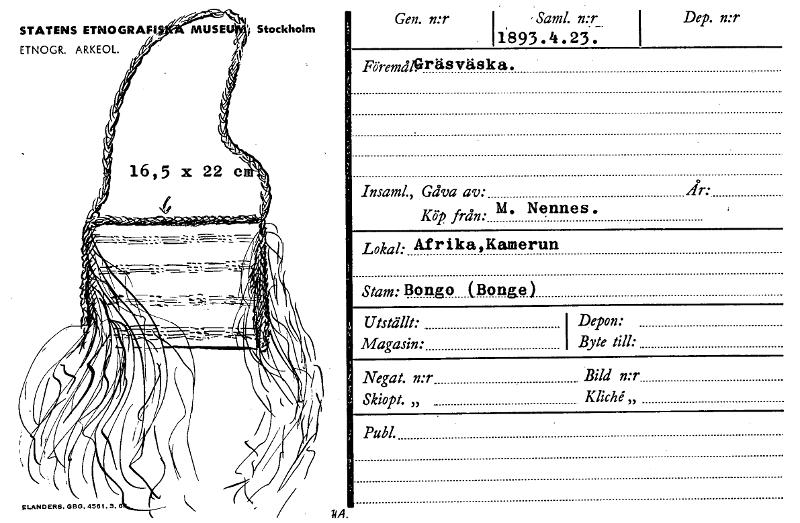 STATENS ETNOGRAFISKA MUSEUM, Stockholm
ETNOGR. ARKEOL.
16,5 x 22 cm
ELANDERS, GBG, 4561, 3,
Gen. n:r Saml. n:r Dep. n:r
1893.4.23.
Föremål: Gräsväska.
Insaml., Gåva av: År:
Köp från: M. Nennes.
Lokal: Afrika,Kamerun
Stam: Bongo (Bonge)
Utställt: Depon:
Magasin: Byte till:
Negat. n:r Bild n:r
Skiopt. „ Kliché „
Publ.